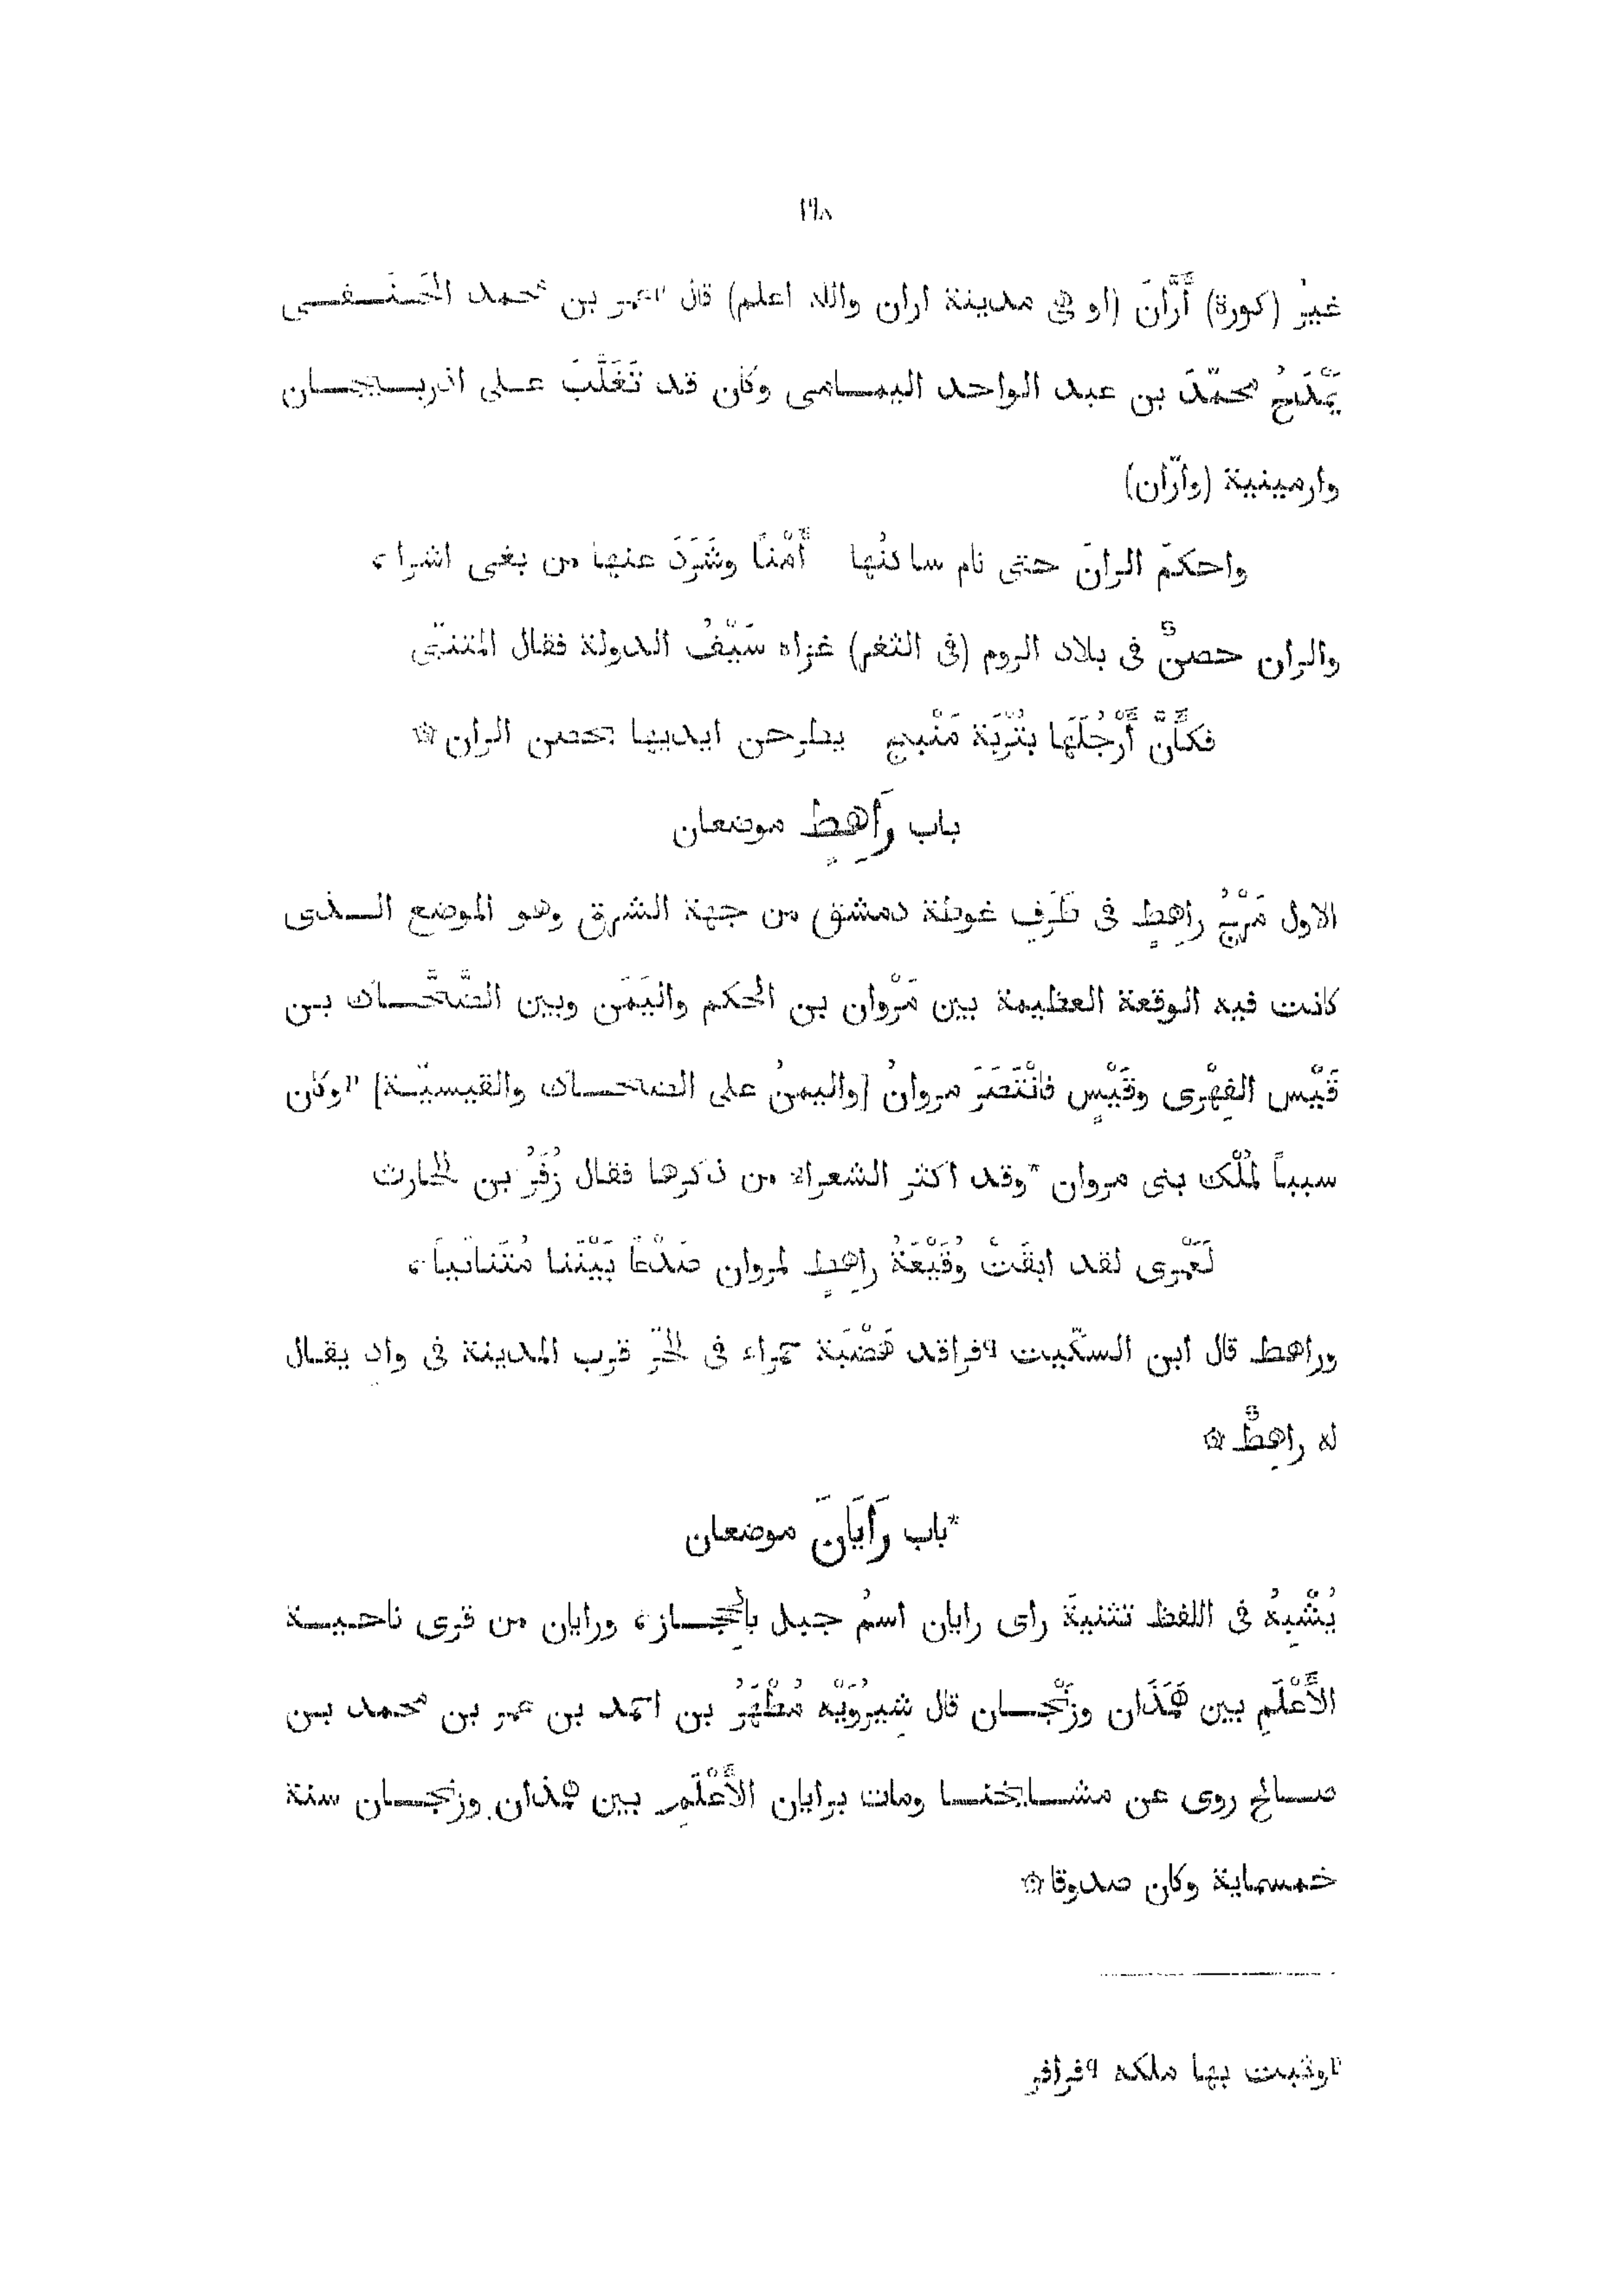 ١٩٨
غيرُ (كورة) أَرَّانَ (او هى مدينة اران والله اعلم) قال عمر بن محمد الحَنَفى
يَمْدَحُ محمّدَ بن عبد الواحد اليمامى وكان قد تَغَلَّبَ على اذربيجان
وارمينية (وارّان)
واحكمَ الرانَ حتى نام ساكنُها أَمْنًا وشَرَدَ عنها من بغى اشرا،
والران حصنٌ فى بلاد الروم (فى الثغر) غزاه سَيْفُ الدولة فقال المتنبّى
فكأَنَّ أَرْجُلَهَا بتُرْبَة مَنْبج يطرحن ايديها بحصن الران ۞
باب رَاهِطٍ موضعان
الاول مَرْجُ راهِطٍ فى طَرَفِ غوطة دمشق من جهة الشرق وهو الموضع الذى
كانت فيه الوقعة العظيمة بين مَرْوان بن الحكم واليَمَن وبين الضَّحَّاك بن
قَيْس الفِهْرى وقَيْسٍ فانْتَصَرَ مروانُ [واليمنُ على الضحاك والقيسيّة] pوكان
سبباً لمُلْك بنى مروان *وقد اكثر الشعراء من ذكرها فقال زُفَرُ بن الحارث
لَعَمْرى لقد ابقَتْ وُقَيْعَةُ راهِطٍ لمروان صَدْعًا بَيْنَنا مُتَنائياَ،
وراهط قال ابن السكّيت qفراقد هَضْبَة حمراء فى الحَرّ قرب المدينة فى وادٍ يقال
له راهِطٌ ۞
*باب رَايَانَ موضعان
يُشْبِهُ فى اللفظ تثنيةَ راى رايان اسمُ جبل بالحِجاز، ورايان من قرى ناحية
الأَعْلَمِ بين هَمَذَان وزَنْجان قال شِيرُوَيْه مُطْهَرُ بن احمد بن عمر بن محمد بن
صالح روى عن مشايخنا ومات برايان الأَعْلَمِ بين همذان وزنجان سنة
خمسماية وكان صدوقا ۞
pوثبت بها ملكه qفرافر